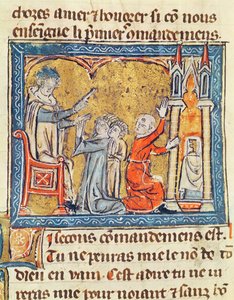 choses amer & honorer si cō nous
enseigne li premiers comandemens.
Li secons comandemens est.
Tu ne penras mie le nō de tō
dieu en vain. Cest adire tu ne iu
reras mie pour noiant & sanz bō